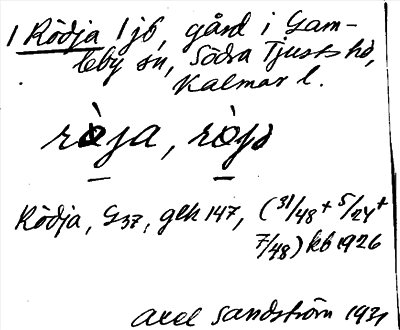 1 Rödja 1 jb, gård i Gam-
leby sn, Södra Tjusts hd,
Kalmar l.
rò̱ja, rò̱jə
Rödja, G37, gek 147, (31/48 + 5/24 +
7/48) kb 1926
Axel Sandström 1931